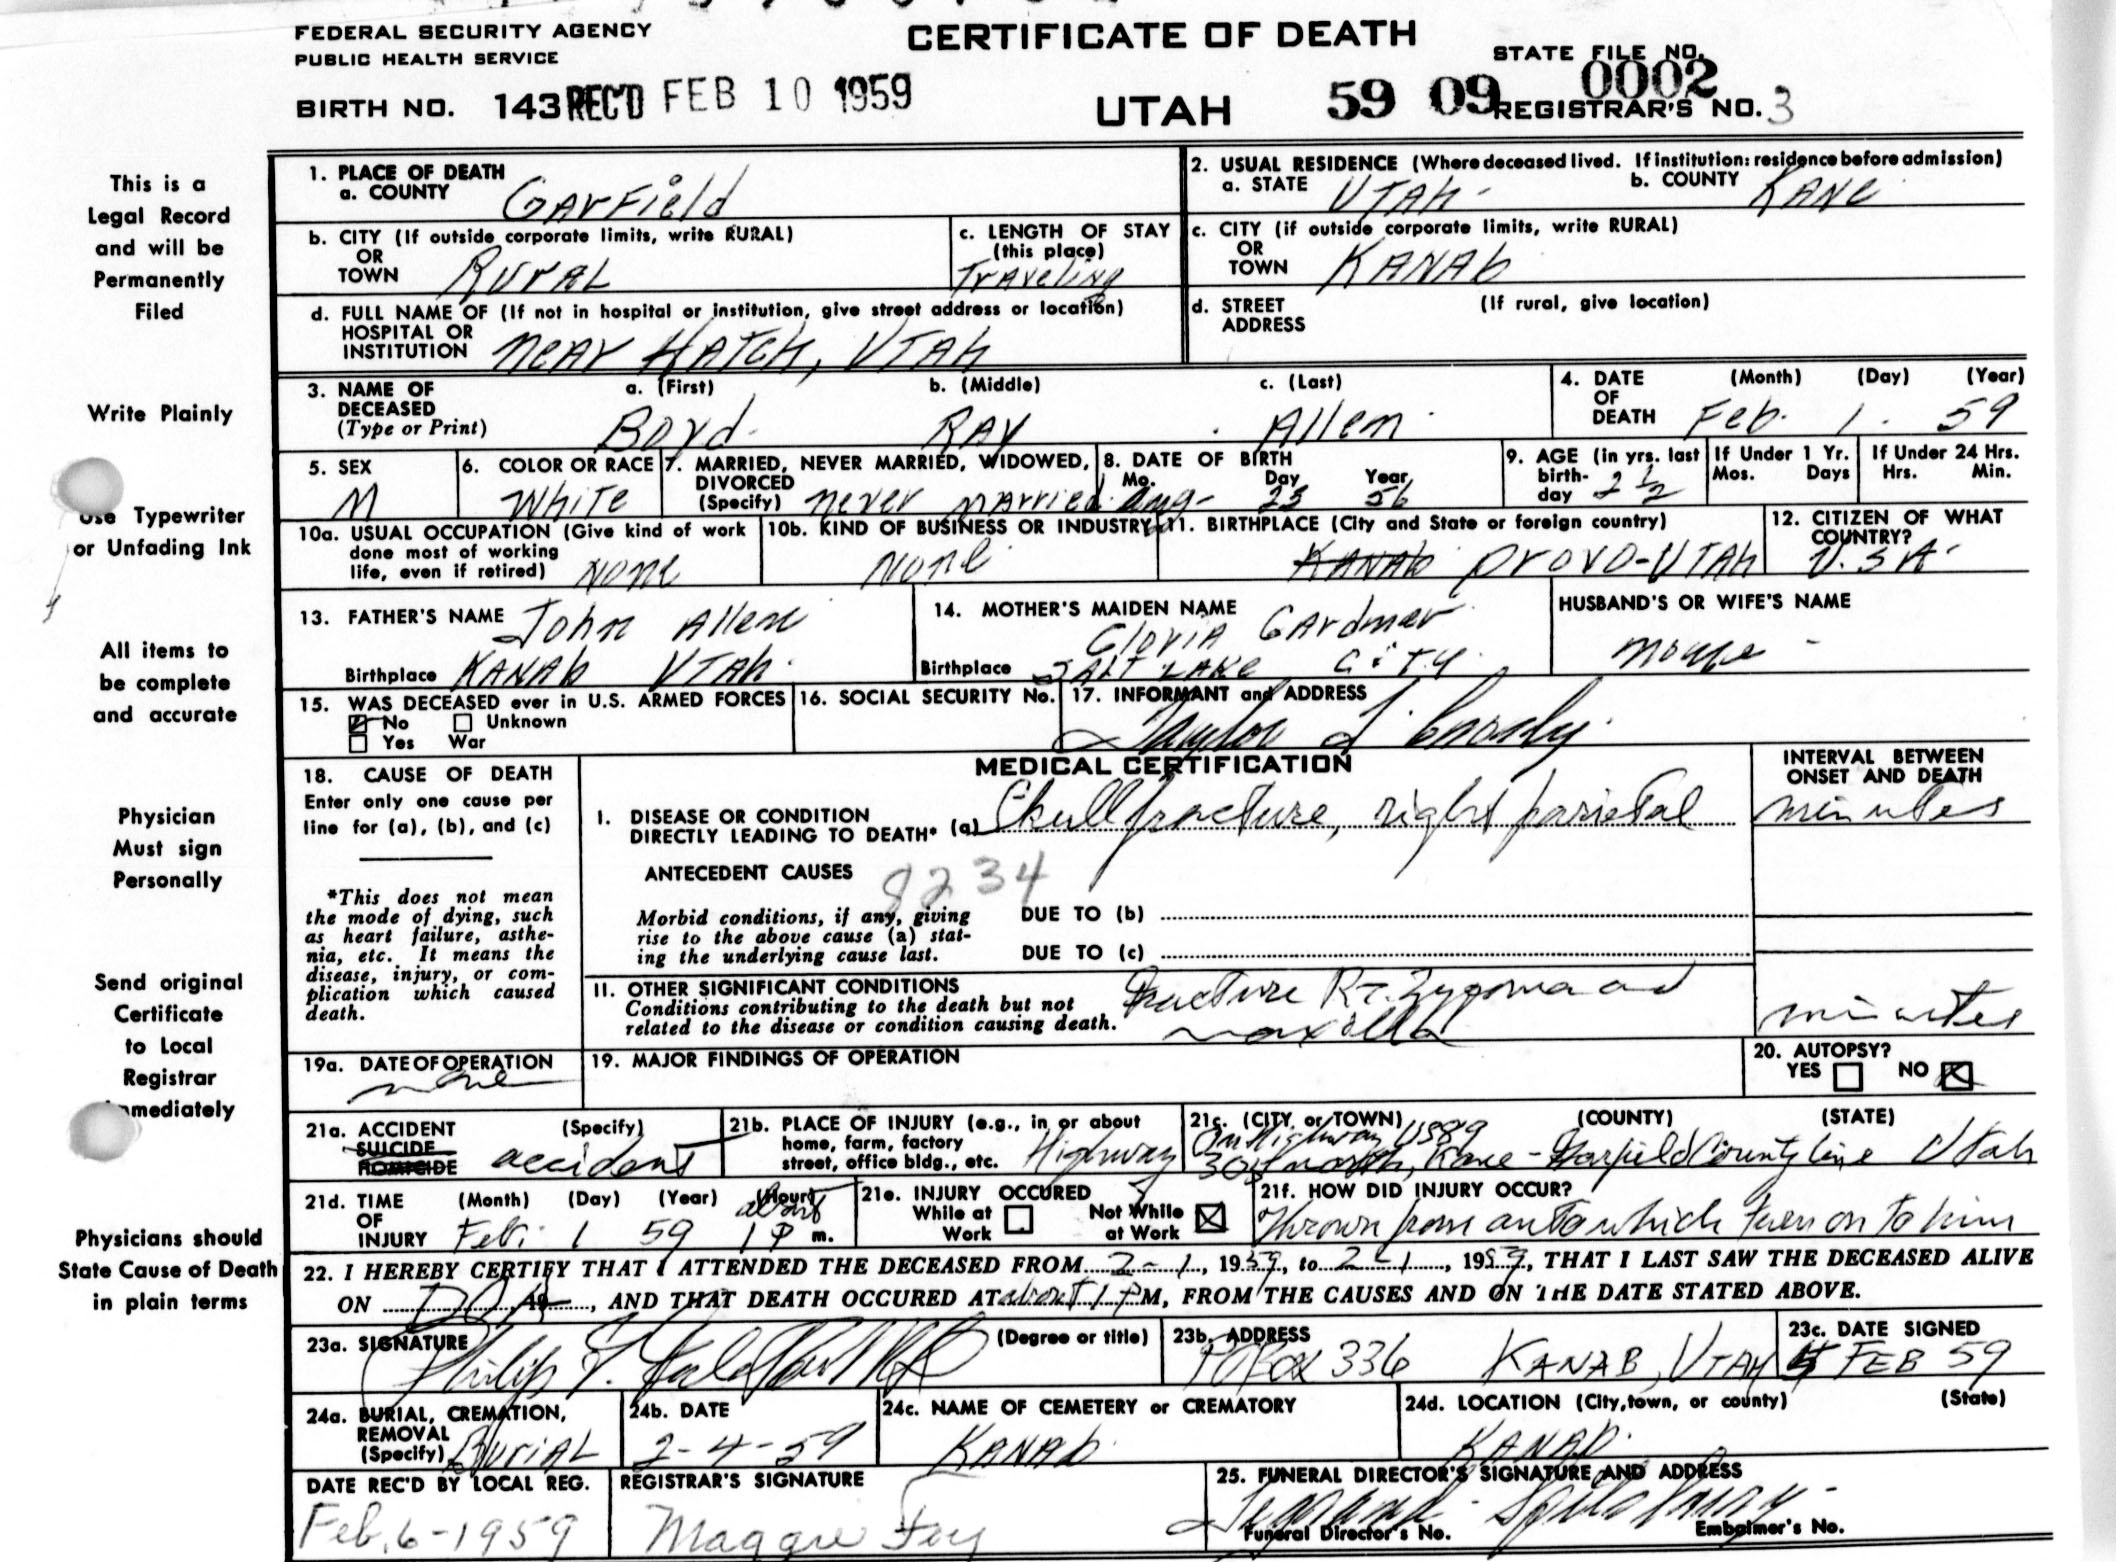 FEDERAL SECURITY AGENCY
PUBLIC HEALTH SERVICE
CERTIFICATE OF DEATH
STATE FILE NO.
0002
BIRTH NO. 143 REC'D FEB 10 1959
UTAH
59 09
REGISTRAR'S NO. 3
This is a
Legal Record
and will be
Permanently
Filed
Write Plainly
Use Typewriter
or Unfading Ink
All items to
be complete
and accurate
Physician
Must sign
Personally
Send original
Certificate
to Local
Registrar
Immediately
Physicians should
State Cause of Death
in plain terms
1. PLACE OF DEATH
a. COUNTY Garfield
2. USUAL RESIDENCE (Where deceased lived. If institution: residence before admission)
a. STATE UTAH b. COUNTY KANE
b. CITY (If outside corporate limits, write RURAL)
OR
TOWN RURAL
c. LENGTH OF STAY
(this place)
Traveling
c. CITY (if outside corporate limits, write RURAL)
OR
TOWN KANAb
d. FULL NAME OF (If not in hospital or institution, give street address or location)
HOSPITAL OR
INSTITUTION NEAR HATCH, UTAH
d. STREET (If rural, give location)
ADDRESS
3. NAME OF DECEASED
(Type or Print)
a. (First) b. (Middle) c. (Last)
Boyd RAY Allen
4. DATE OF DEATH
(Month) (Day) (Year)
Feb. 1. 59
5. SEX
M
6. COLOR OR RACE
White
7. MARRIED, NEVER MARRIED, WIDOWED,
DIVORCED
(Specify) never married
8. DATE OF BIRTH
Mo. Day Year
Aug- 23 56
9. AGE (in yrs. last
birth-
day 2 1/2
If Under 1 Yr.
Mos. Days
If Under 24 Hrs.
Hrs. Min.
10a. USUAL OCCUPATION (Give kind of work
done most of working
life, even if retired) NONE
10b. KIND OF BUSINESS OR INDUSTRY
NONE
11. BIRTHPLACE (City and State or foreign country)
KANAb Provo-UTAH
12. CITIZEN OF WHAT
COUNTRY?
U.S.A.
13. FATHER'S NAME John Allen
Birthplace KANAb UTAH.
14. MOTHER'S MAIDEN NAME
GloriA GArdner
Birthplace SALT LAKE CITY.
HUSBAND'S OR WIFE'S NAME
15. WAS DECEASED ever in U.S. ARMED FORCES
No Unknown
Yes War
16. SOCIAL SECURITY No.
17. INFORMANT and ADDRESS
Taylor L. Crosby
18. CAUSE OF DEATH
Enter only one cause per
line for (a), (b), and (c)
*This does not mean
the mode of dying, such
as heart failure, asthe-
nia, etc. It means the
disease, injury, or com-
plication which caused
death.
MEDICAL CERTIFICATION
INTERVAL BETWEEN
ONSET AND DEATH
I. DISEASE OR CONDITION
DIRECTLY LEADING TO DEATH* (a) Skull fracture, right parietal
minutes
ANTECEDENT CAUSES
8234
Morbid conditions, if any, giving
rise to the above cause (a) stat-
ing the underlying cause last.
DUE TO (b)
DUE TO (c)
II. OTHER SIGNIFICANT CONDITIONS
Conditions contributing to the death but not
related to the disease or condition causing death.
Fracture Rt. Zygoma and
maxilla
minutes
19a. DATE OF OPERATION
none
19. MAJOR FINDINGS OF OPERATION
20. AUTOPSY?
YES NO
21a. ACCIDENT (Specify)
SUICIDE
HOMICIDE accident
21b. PLACE OF INJURY (e.g., in or about
home, farm, factory
street, office bldg., etc. Highway
21c. (CITY or TOWN) (COUNTY) (STATE)
On Highway US89
north, Kane - Garfield County line Utah
21d. TIME
OF
INJURY
(Month) (Day) (Year) (Hour)
Feb. 1 59 about 1 P m.
21e. INJURY OCCURED
While at Work
Not While at Work
21f. HOW DID INJURY OCCUR?
Thrown from auto which turn on to him
22. I HEREBY CERTIFY THAT I ATTENDED THE DECEASED FROM 2-1, 1959, to 2-1, 1959, THAT I LAST SAW THE DECEASED ALIVE
ON DOA, AND THAT DEATH OCCURED AT about 1 P M, FROM THE CAUSES AND ON THE DATE STATED ABOVE.
23a. SIGNATURE (Degree or title)
Philip
23b. ADDRESS
PO Box 336 KANAB, UTAH
23c. DATE SIGNED
5 FEB 59
24a. BURIAL, CREMATION,
REMOVAL
(Specify) BURIAL
24b. DATE
2-4-59
24c. NAME OF CEMETERY or CREMATORY
KANAb.
24d. LOCATION (City, town, or county) (State)
KANAb.
DATE REC'D BY LOCAL REG.
Feb. 6-1959
REGISTRAR'S SIGNATURE
Maggie Fey
25. FUNERAL DIRECTOR'S SIGNATURE AND ADDRESS
Funeral Director's No. Embalmer's No.